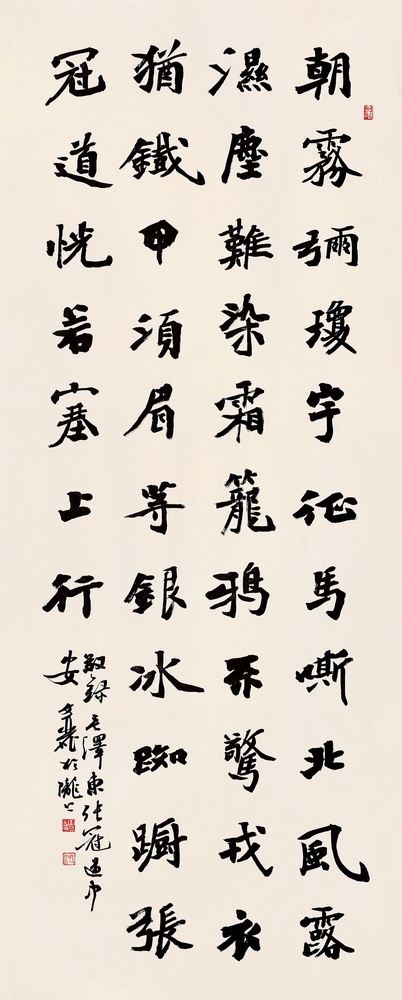 朝霧彌瓊宇征馬嘶北風露
濕塵難染霜籠鴉不驚戎衣
猶鐵甲須眉等銀冰踟蹰張
冠道恍若塞上行
敬錄毛澤東张冠道中
安於隴上